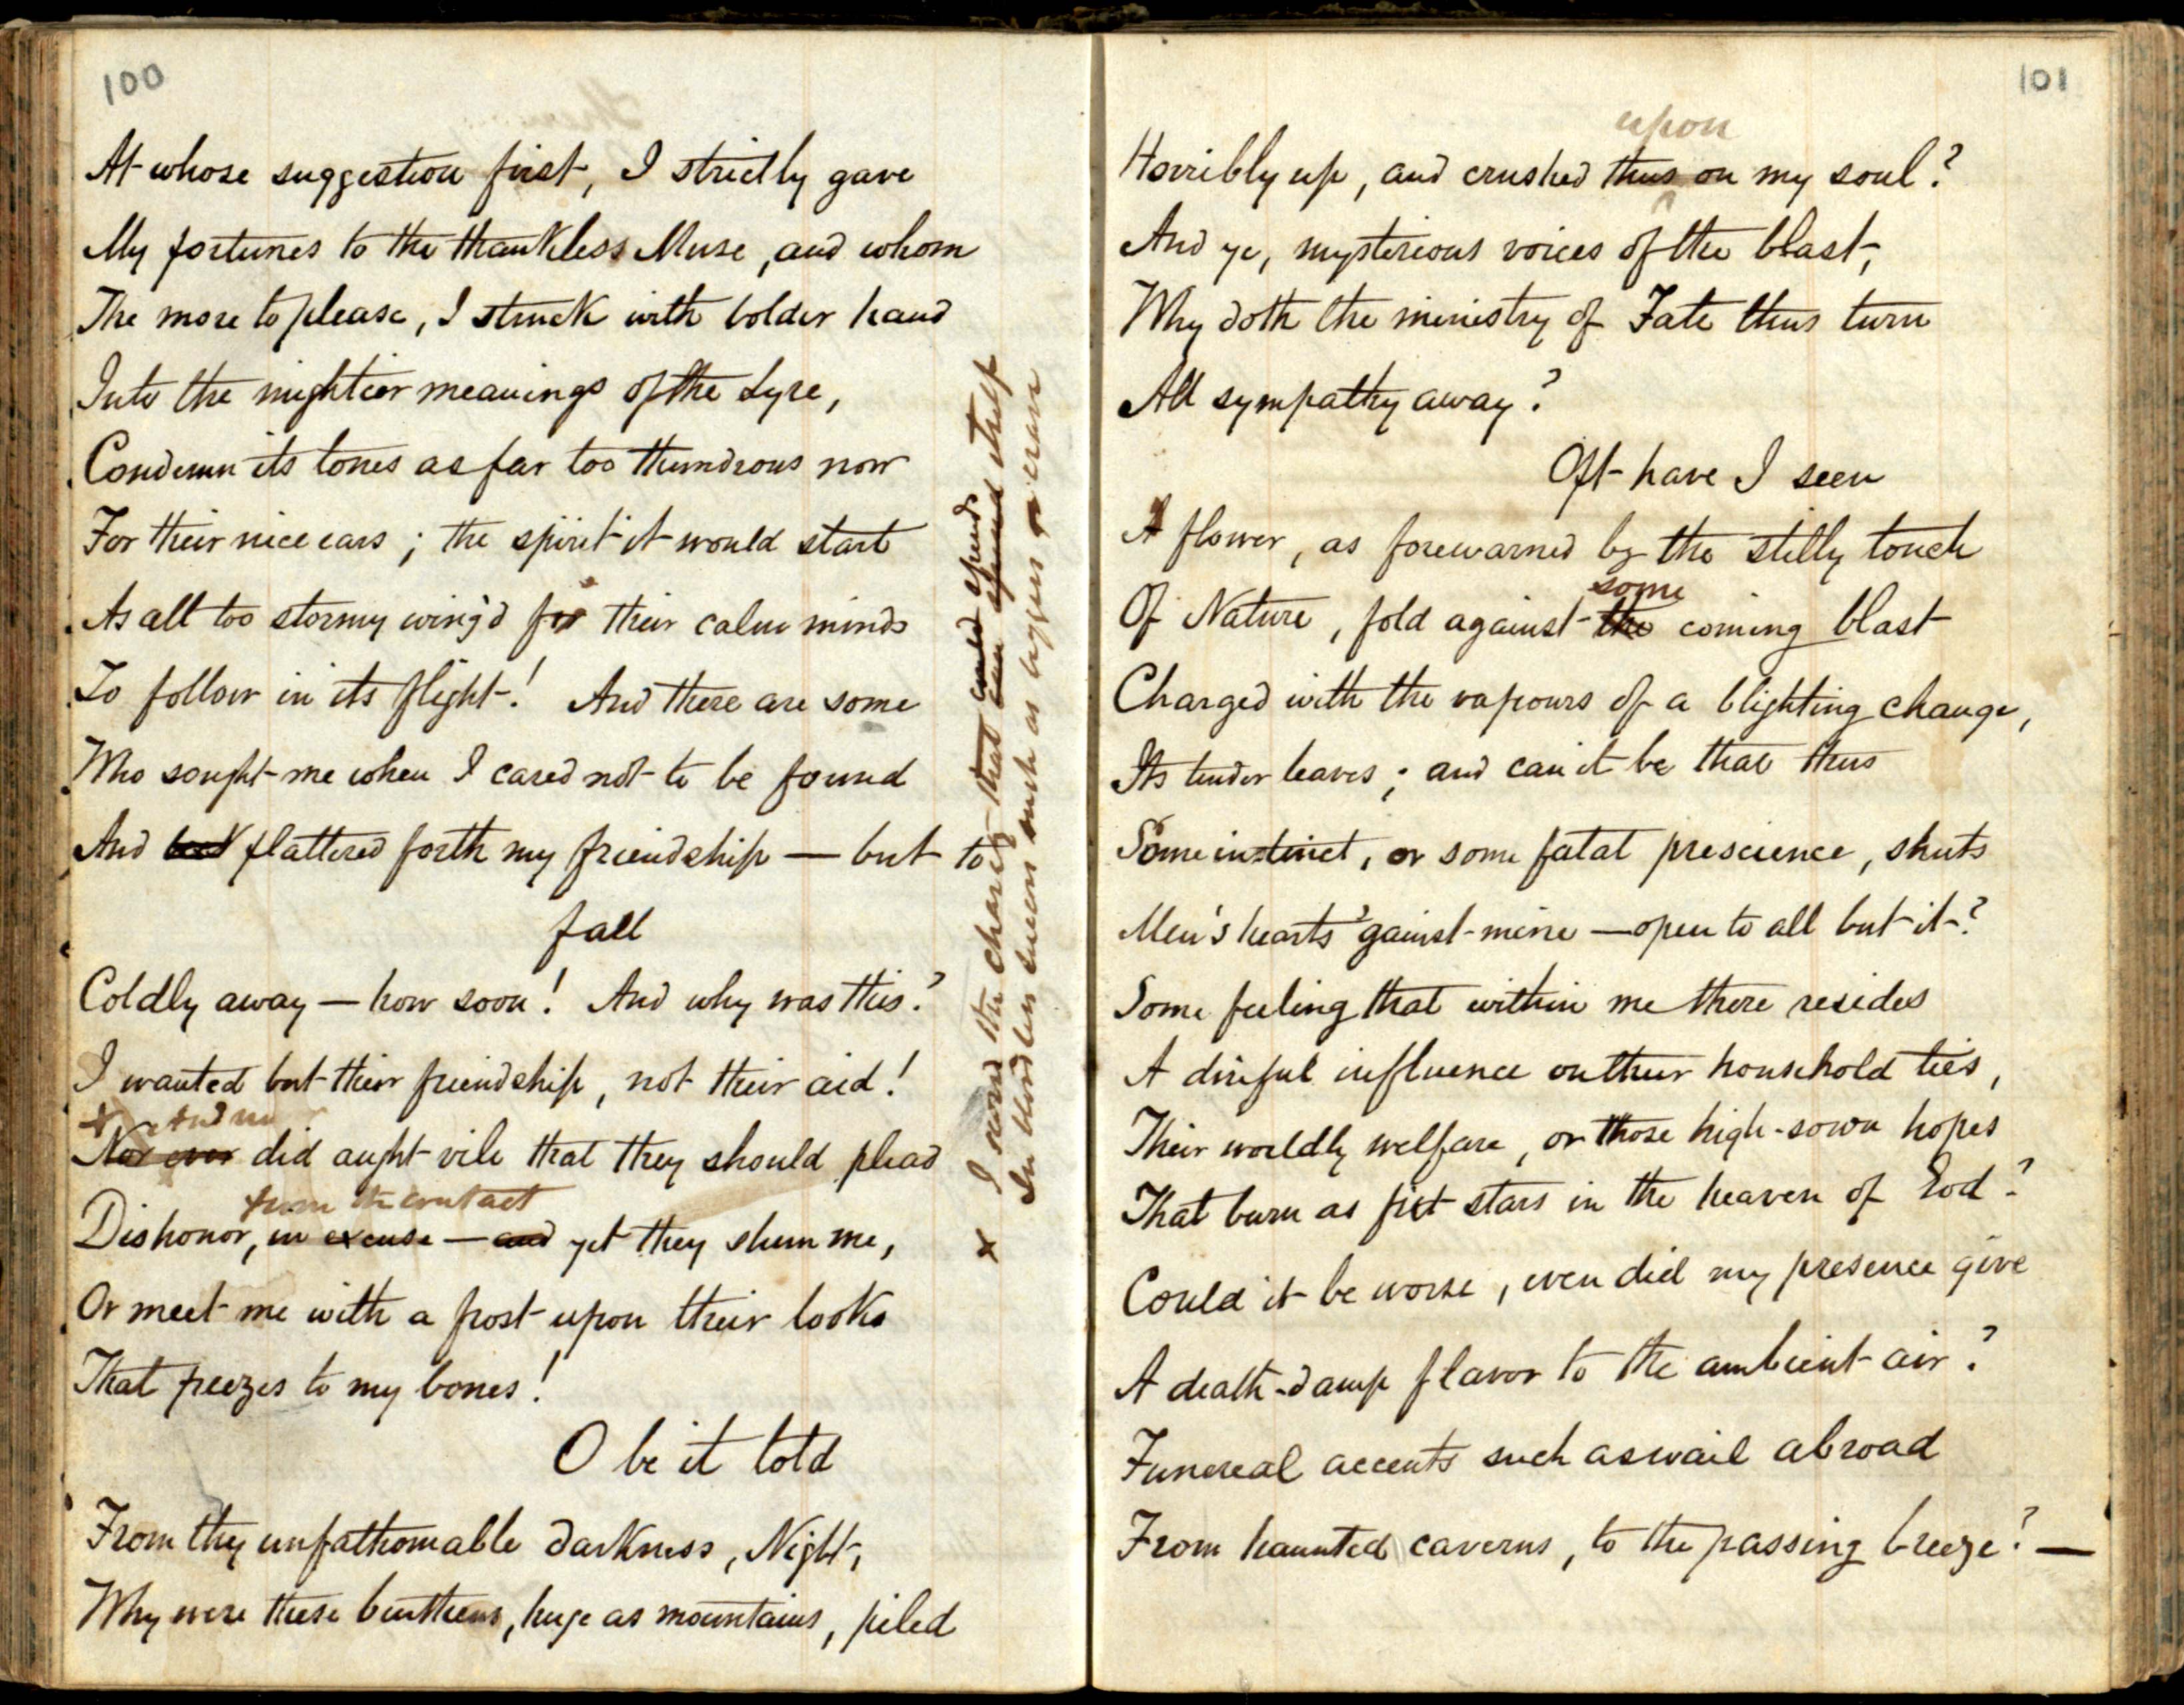 100
At whose suggestion first, I strictly gave
My fortunes to the thankless Muse, and whom
The more to please, I struck with bolder hand
Into the mightier meanings of the Lyre,
Condemn its tones as far too thundrous now
For their nice ears; the spirit it would start
As all too stormy wing'd for their calm minds
To follow in its flight! And there are some
Who sought me when I cared not to be found
And flattered forth my friendship — but to
fall
Coldly away — how soon! And why was this?
I wanted but their friendship, not their aid!
x And no
Nor ever did aught vile that they should plead
from the contact
Dishonor, in excuse — and yet they shun me,
Or meet me with a frost upon their looks
That freezes to my bones!
O be it told
From thy unfathomable darkness, Night,
Why were these burthens, huge as mountains, piled
could spends
x I scorn the charity that can spend itself
In words
101
upon
Horribly up, and crushed thus on my soul?
And ye, mysterious voices of the blast,
Why doth the ministry of Fate thus turn
All sympathy away?
Oft have I seen
A flower, as forewarned by the stilly touch
some
Of Nature, fold against the coming blast
Charged with the vapours of a blighting change,
Its tender leaves; and can it be that thus
Some instinct, or some fatal prescience, shuts
Men's hearts 'gainst mine — open to all but it?
Some feeling that within me there resides
A direful influence on their household ties,
Their worldly welfare, or those high-sown hopes
That burn as fixt stars in the heaven of God?
Could it be worse, even did my presence give
A death-damp flavor to the ambient air?
Funereal accents such as wail abroad
From haunted caverns, to the passing breeze? —